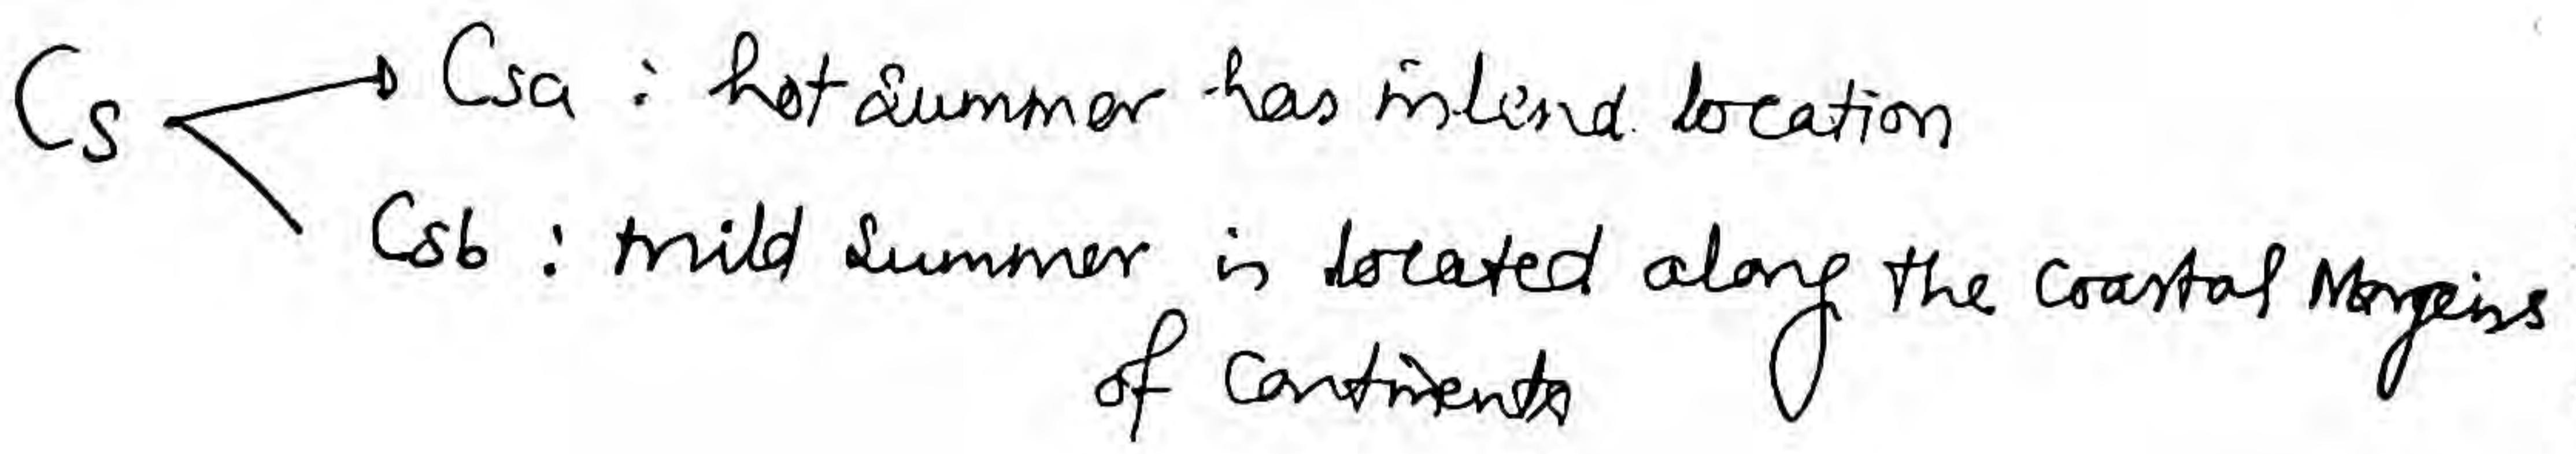 Cs
Csa : hot summer has inland location
Csb : mild summer is located along the coastal Margins
of continents